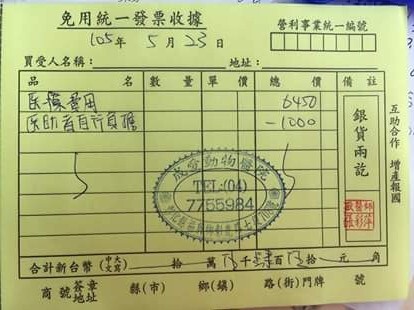 免用統一發票收據
營利事業統一編號
105年 5 月 23 日
買受人名稱： 地址：
品 名 數量 單價 總價 備註
医療費用 6450
医助者自行負擔 -1000
銀貨兩訖
互助合作 增產報國
動物醫院
TEL:(04)
7755984
合計新台幣(中文大寫) 拾 萬 仟 百 拾 元 角
商號簽章地址 縣(市) 鄉(鎮) 路(街)門牌 號